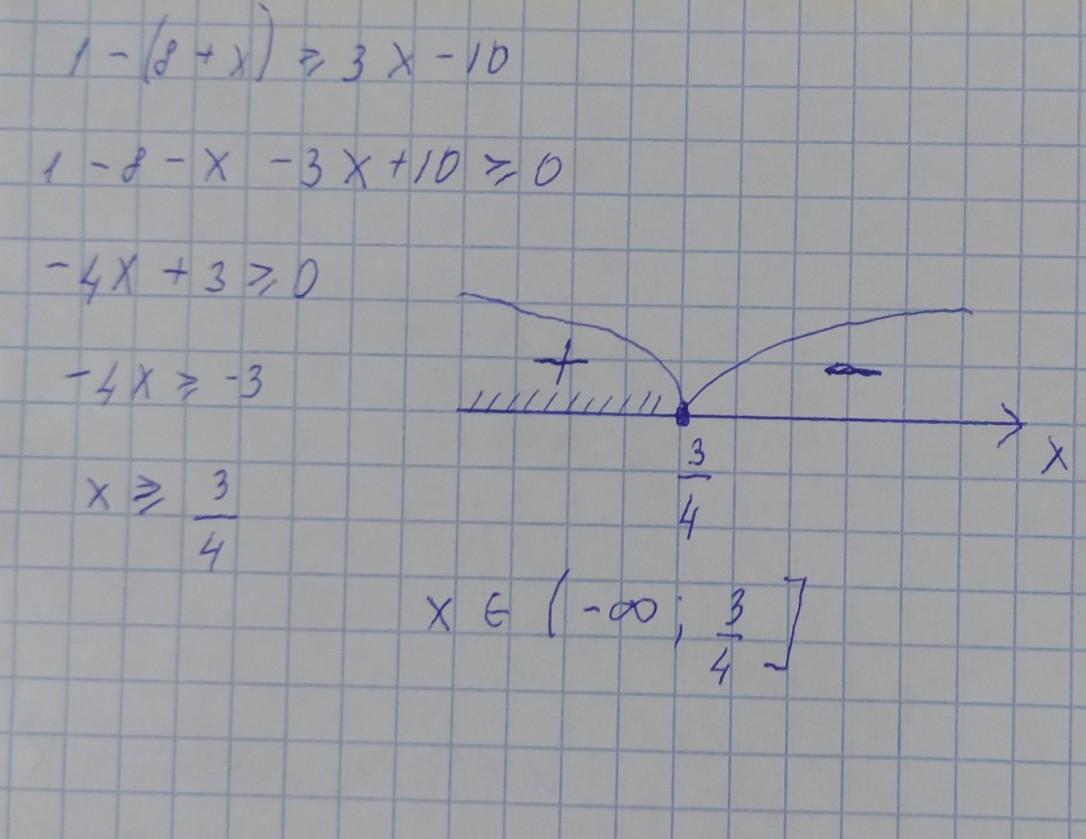 1 - (8 + x) ⩾ 3x - 10
1 - 8 - x - 3x + 10 ⩾ 0
-4x + 3 ⩾ 0
-4x ⩾ -3
x ⩾ 3/4
+ -
3/4
x
x ∈ (-∞; 3/4]